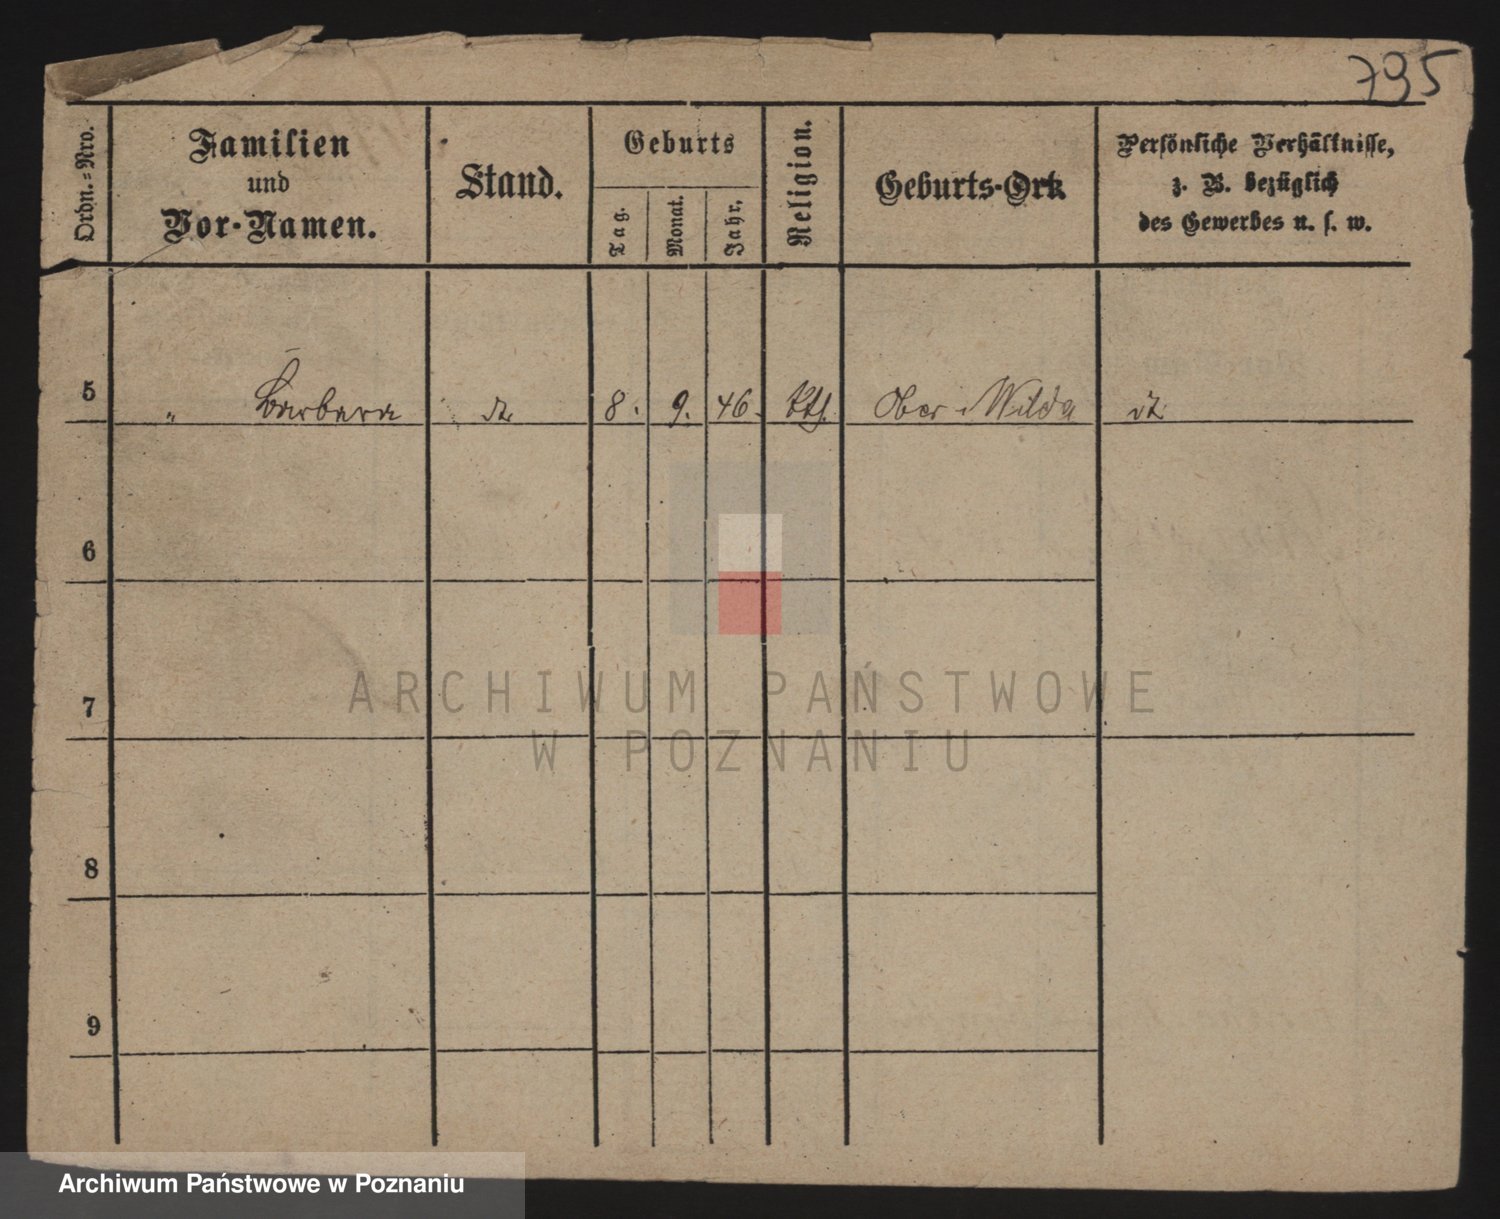 795
Ordn.=Nro.
Familien
und
Vor-Namen.
Stand.
Geburts
Tag.
Monat.
Jahr.
Religion.
Geburts-Ort
Persönliche Verhältnisse,
z. B. bezüglich
des Gewerbes u. s. w.
5 " Barbara dto 8. 9. 46. kth. Ober Wilda dto
6
7
8
9
ARCHIWUM PAŃSTWOWE
W POZNANIU
Archiwum Państwowe w Poznaniu